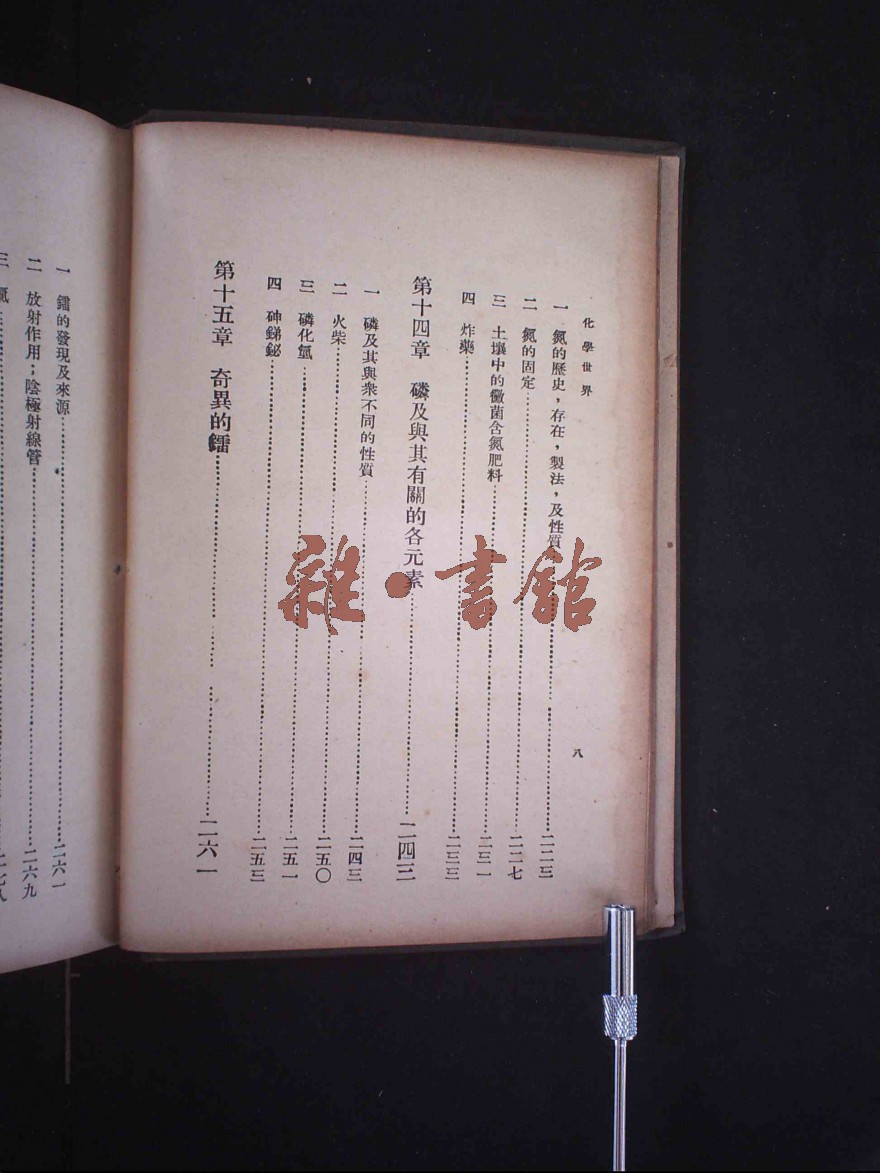 化學世界
八
一 氮的歷史，存在，製法，及性質……二二三
二 氮的固定……二二七
三 土壤中的黴菌含氮肥料……二三一
四 炸藥……二三三
第十四章 磷及與其有關的各元素……二四三
一 磷及其與衆不同的性質……二四三
二 火柴……二五〇
三 磷化氫……二五一
四 砷銻鉍……二五三
第十五章 奇異的鐳……二六一
一 鐳的發現及來源……二六一
二 放射作用；陰極射線管……二六九
三
雜·書館